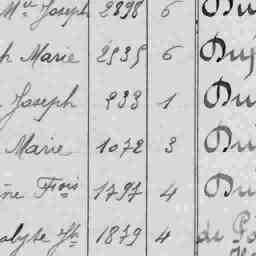 Mie Joseph 2898 6 Du
h Marie 2535 6 Duj
Joseph 933 1 Du
Marie 1072 3 Duj
ne Fois 1797 4 Du
olyte Jh 1879 4 de